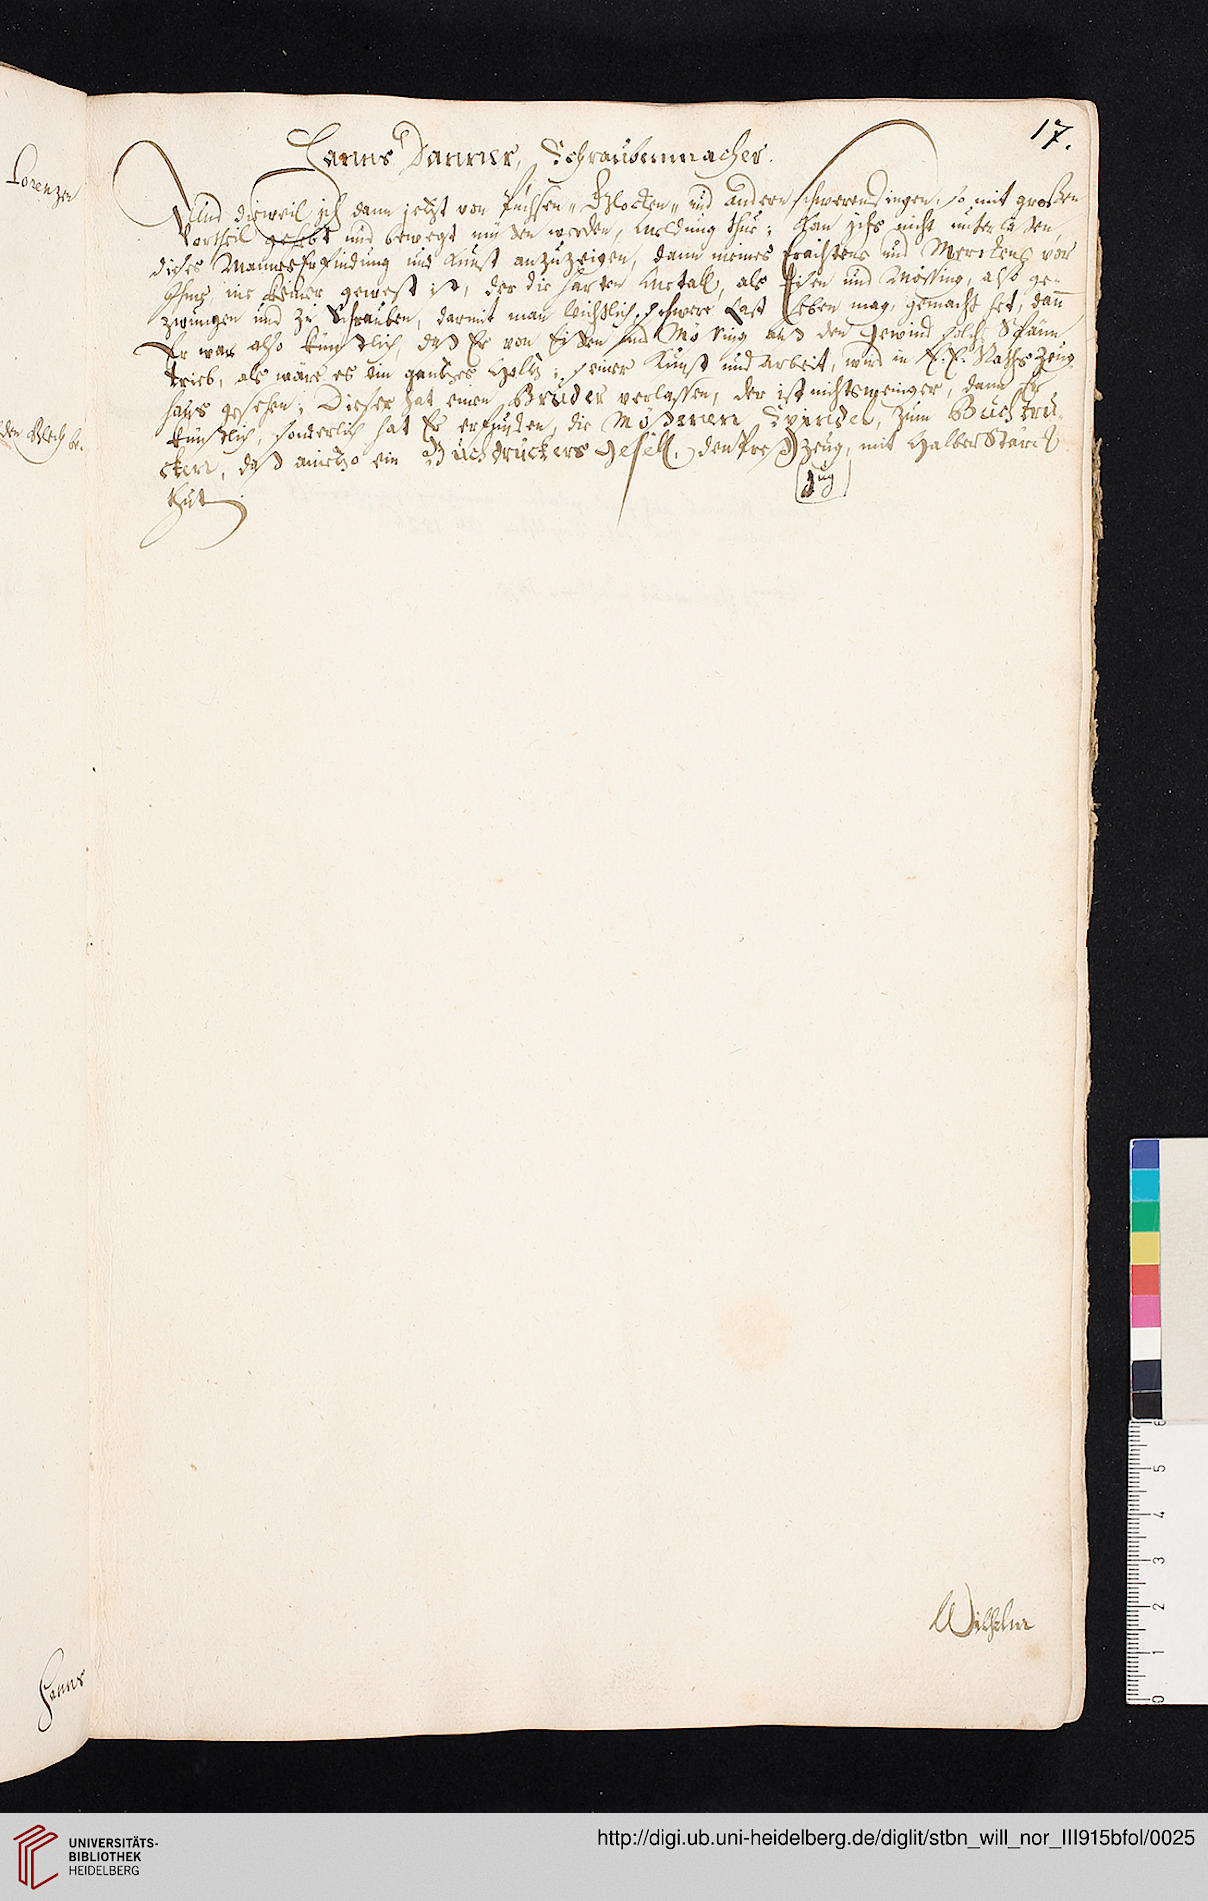 17.
Lorenzen
Hanns Danner, Schraubenmacher.
Und dieweil jch dann jetzt von Püchsen, Glocken, und andern schweren dingen, so mit großen
Vortheil gehebt und bewegt müssen werden, Meldung thue; Kan jchs nicht unterlassen
dieses Mannes Erfindung und Kunst anzuzeigen, dann meines Erachtens und Merckens vor
Jhme, nie keiner gewest ist, der die harten Metall, als Eisen und Mössing, also ge-
zwungen und zu Schrauben, darmit man leichtlich schwere Last heben mag, gemacht het, dan
Er war also künstlich, daß Er von Eissen und Mössing auß den Gewind solch Spänn
trieb, als wäre es ein gantzes Holtz; seiner Kunst und Arbeit, wird in E. E. Raths Zeug-
haus gesehen; Dieser hat einen Bruder verlassen, der ist nichts weniger, dann Er
künstlich, sonderlich hat Er erfunden, die Mößenen Spindel, zum Buchdru-
ckern, daß anietzo ein Buchdruckers Gesell, den Preß Zeug, mit Halber Stärck
Zug
thut.
den Blech be-
Wilhelm
Hanns
UNIVERSITÄTS-
BIBLIOTHEK
HEIDELBERG
http://digi.ub.uni-heidelberg.de/diglit/stbn_will_nor_III915bfol/0025
6
5
4
3
2
1
0